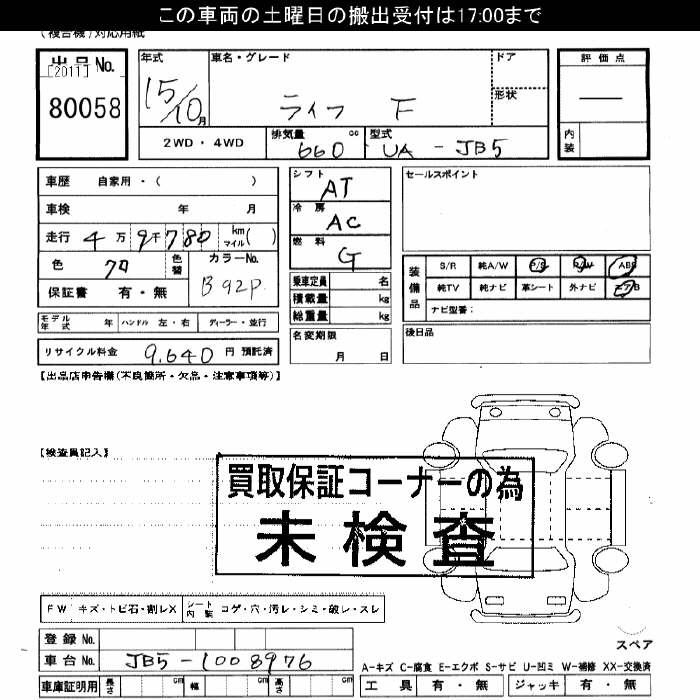 この車両の土曜日の搬出受付は17:00まで
(複合機)対応用紙
出品No.
[2011]
80058
年式
15/10月
車名・グレード
ライフ F
ドア
形状
評価点
内装
2WD・4WD
排気量 cc
660
型式
UA - JB5
車歴 自家用・( )
車検 年 月
走行 4万 9千 780 km マイル( )
色 クロ
色替
カラーNo.
B92P
保証書 有・無
シフト
AT
冷房
AC
燃料
G
セールスポイント
装備品
S/R 純A/W P/S P/W ABS
純TV 純ナビ 革シート 外ナビ エアB
ナビ型番:
乗車定員 名
積載量 kg
総重量 kg
モデル年式 年 ハンドル 左・右 ディーラー・並行
名変期限
月 日
後日品
リサイクル料金 9,640 円 預託済
【出品店申告欄(不良箇所・欠品・注意事項等)】
【検査員記入】
買取保証コーナーの為
未検査
FW キズ・トビ石・割レX
シート内装 コゲ・穴・汚レ・シミ・破レ・スレ
登録No.
車台No. JB5-1008976
車庫証明用 長さ cm 幅 cm 高さ cm
スペア
A-キズ C-腐食 E-エクボ S-サビ U-凹ミ W-補修 XX-交換済
工具 有・無 ジャッキ 有・無